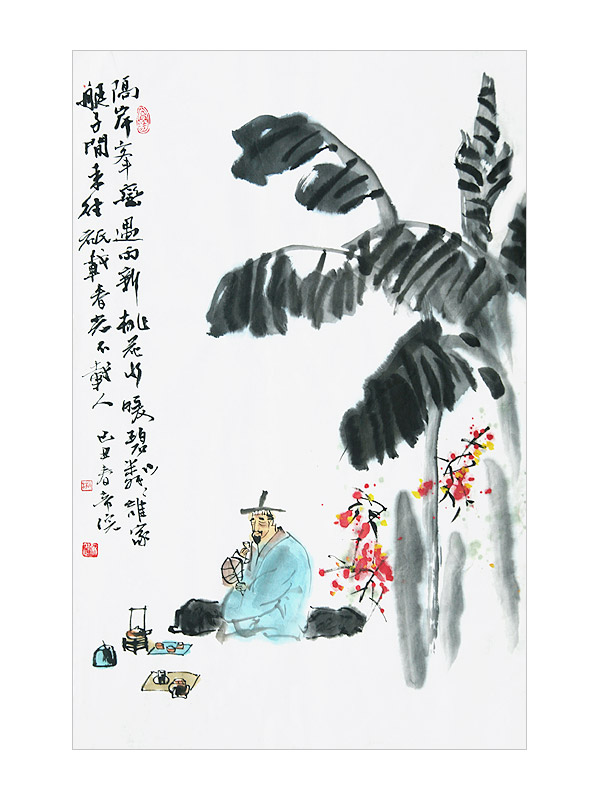 隔岸峯巒過雨新桃花水暖碧粼〻誰家
艇子閒來往祇載春光不載人 己丑春